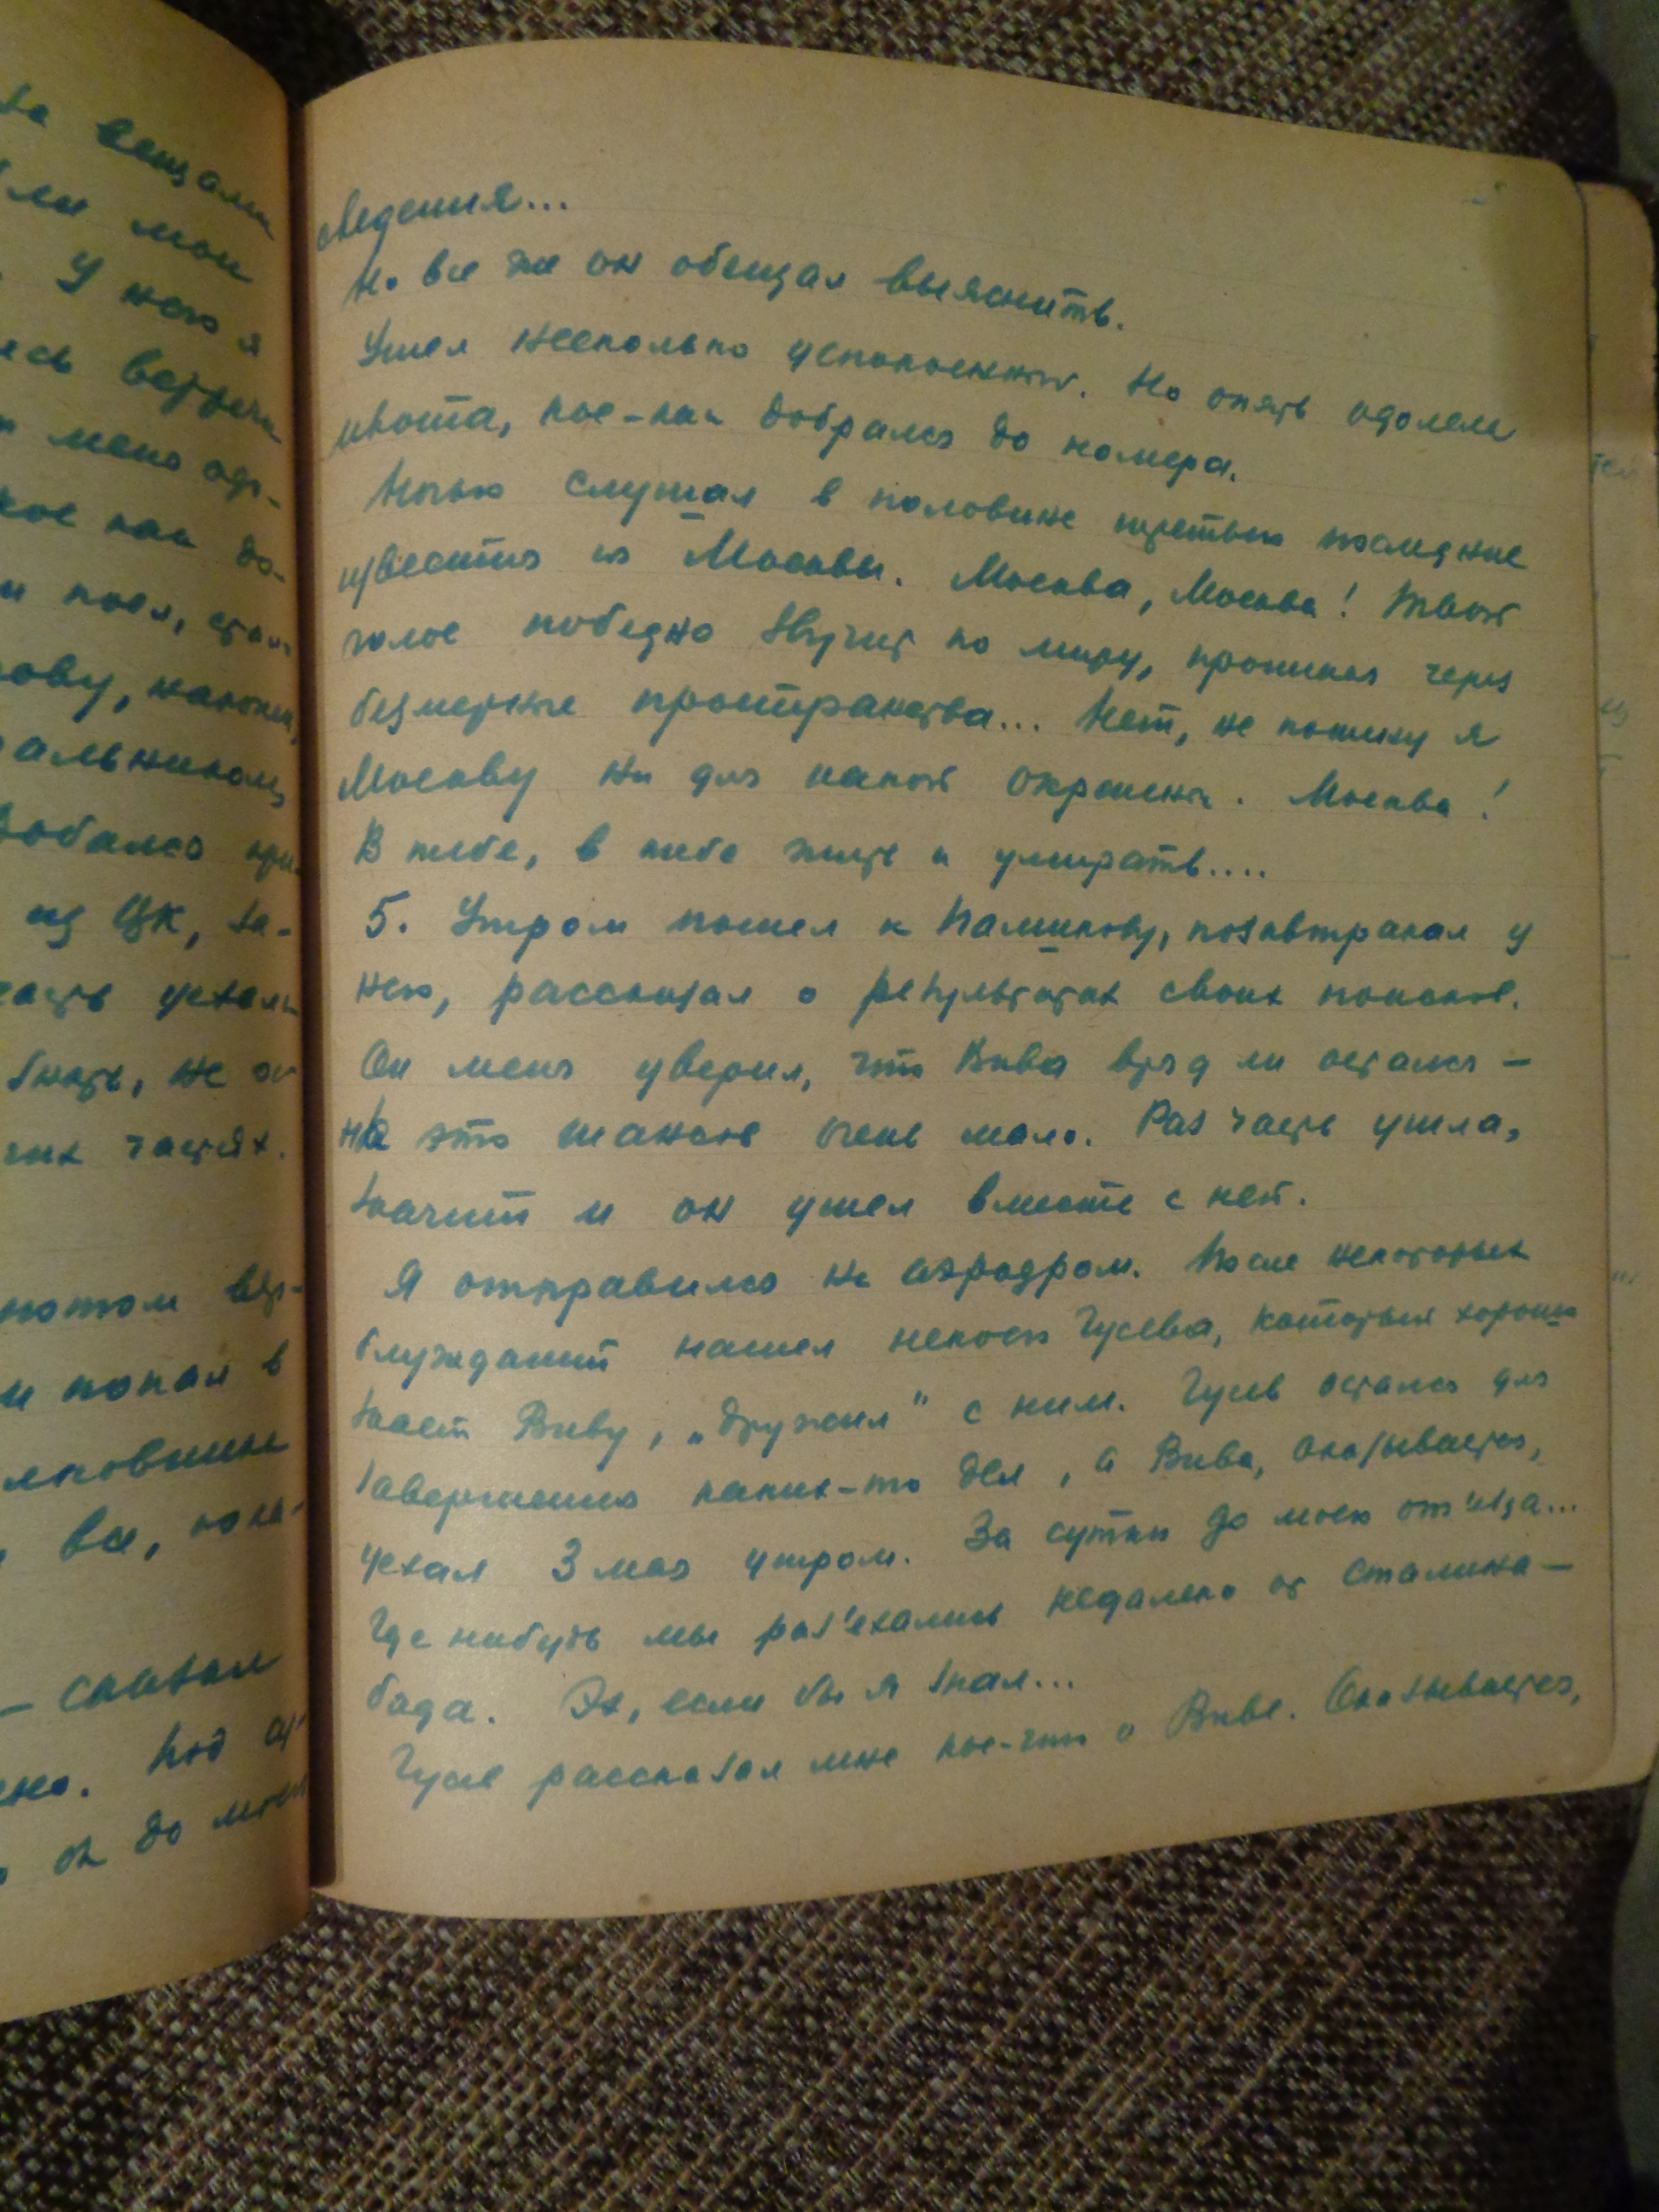 за вещами
или мои
У него я
ись встречи
меня одо-
кое как до-
и поел, стал
рову, наконец,
дальникам
Добался при-
из ЦК, за-
часть уехала
быть, не ос
них частях.
потом вер-
и попал в
все, пока-
— сказал
Под
он до места
сведения...
Но все же он обещал выяснить.
Ушел несколько успокоенный. Но опять одолела
икота, кое-как добрался до номера.
Ночью слушал в половине третьего последние
известия из Москвы. Москва, Москва! Твой
голос победно звучит по миру, проникая через
безмерные пространства... Нет, не покину я
Москву ни для какой окраины. Москва!
В тебе, в тебе жить и умирать....
5. Утром пошел к Паминову, позавтракал у
него, рассказал о результатах своих поисков.
Он меня уверил, что Вива вряд ли остался —
на это шансов очень мало. Раз часть ушла,
значит и он ушел вместе с ней.
Я отправился на аэродром. После некоторых
блужданий нашел некоего Гусева, который хорошо
знает Виву, „дружил" с ним. Гусев остался для
завершения каких-то дел, а Вива, оказывается,
уехал 3 мая утром. За сутки до моего от'езда...
Где нибудь мы раз'ехались недалеко от Сталина-
бада. Эх, если бы я знал...
Гусев рассказал мне кое-что о Виве. Оказывается,